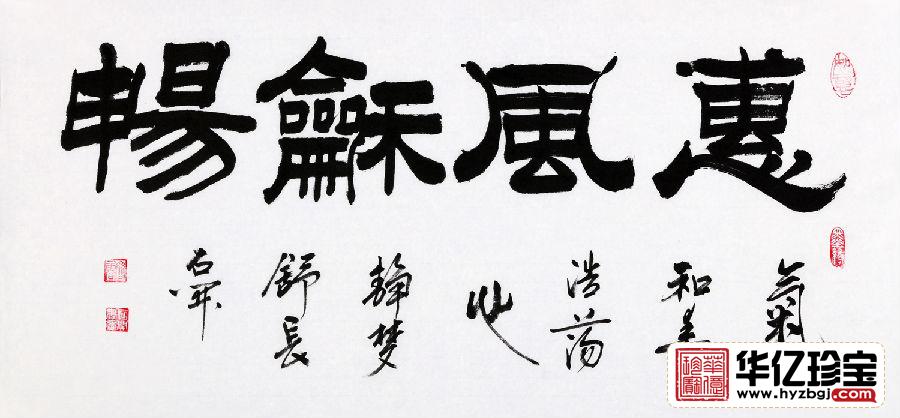 惠風龢暢
氣
和春
浩蕩
心
靜梦
舒長
华亿珍宝
www.hyzbgj.com